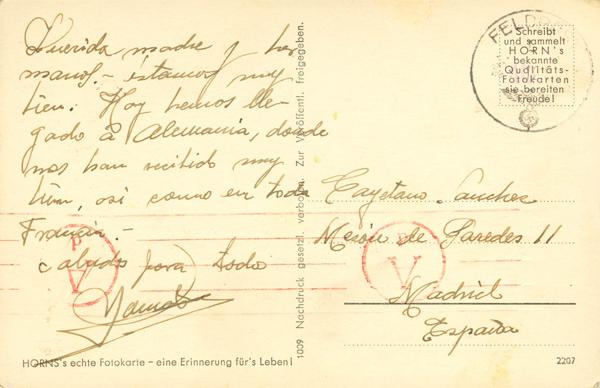 Querida madre y her
manos.- estamos muy
bien. Hoy hemos lle
gado a Alemania, donde
nos han recibido muy
bien, asi como en toda
Francia.-
Saludos para todo
HORNS's echte Fotokarte – eine Erinnerung für's Leben!
1009 Nachdruck gesetzl. verboten. Zur Veröffentl. freigegeben.
FELDP
Schreibt
und sammelt
HORN's
bekannte
Qualitäts-
Fotokarten
sie bereiten
Freude!
Cayetano Sanchez
Mesón de Paredes 11
Madrid
España
P
V
P
V
2207